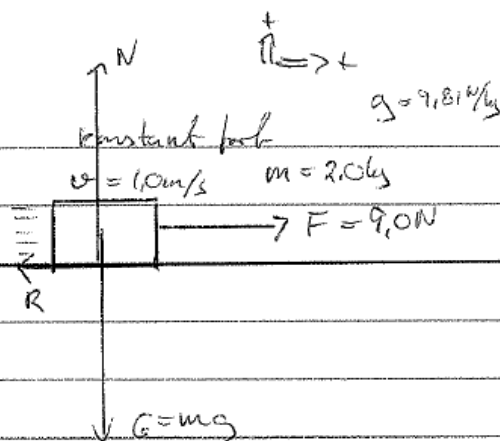 +
N
+
g = 9,81 N/kg
konstant fart
v = 1,0 m/s
m = 2,0 kg
F = 9,0N
R
G = mg